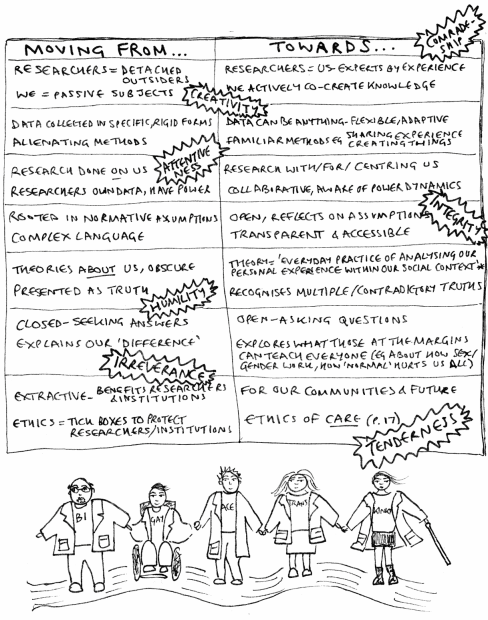 MOVING FROM...
TOWARDS...
COMRADE-
SHIP
RESEARCHERS = DETACHED
OUTSIDERS
WE = PASSIVE SUBJECTS
RESEARCHERS = US-EXPERTS BY EXPERIENCE
WE ACTIVELY CO-CREATE KNOWLEDGE
CREATIVITY
DATA COLLECTED IN SPECIFIC, RIGID FORMS
ALIENATING METHODS
DATA CAN BE ANYTHING-FLEXIBLE, ADAPTIVE
FAMILIAR METHODS EG SHARING EXPERIENCE
CREATING THINGS
ATTENTIVE
NESS
RESEARCH DONE ON US
RESEARCHERS OWN DATA, HAVE POWER
RESEARCH WITH/FOR/CENTRING US
COLLABORATIVE, AWARE OF POWER DYNAMICS
ROOTED IN NORMATIVE ASSUMPTIONS
COMPLEX LANGUAGE
OPEN, REFLECTS ON ASSUMPTIONS
TRANSPARENT & ACCESSIBLE
INTEGRITY
THEORIES ABOUT US, OBSCURE
PRESENTED AS TRUTH
THEORY = 'EVERYDAY PRACTICE OF ANALYSING OUR
PERSONAL EXPERIENCE WITHIN OUR SOCIAL CONTEXT'*
RECOGNISES MULTIPLE/CONTRADICTORY TRUTHS
HUMILITY
CLOSED-SEEKING ANSWERS
EXPLAINS OUR 'DIFFERENCE'
OPEN-ASKING QUESTIONS
EXPLORES WHAT THOSE AT THE MARGINS
CAN TEACH EVERYONE (EG ABOUT HOW SEX/
GENDER WORK, HOW 'NORMAL' HURTS US ALL)
IRREVERANCE
EXTRACTIVE- BENEFITS RESEARCHERS
& INSTITUTIONS
ETHICS = TICK BOXES TO PROTECT
RESEARCHERS/INSTITUTIONS
FOR OUR COMMUNITIES & FUTURE
ETHICS OF CARE (P.17)
TENDERNESS
BI
GAY
ACE
TRANS